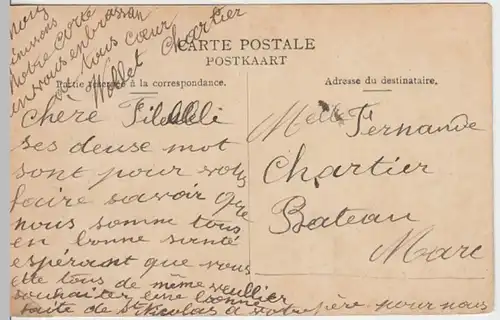 CARTE POSTALE
POSTKAART
Partie réservée à la correspondance.
Adresse du destinataire.
chère
ses deuse mot
sont pour vous
faire savoir que
nous somme tous
en bonne santé
espérant que vous
ette tous de même veullier
souhaiter une bonne
faite de St Nicolas a votre père pour nous
notre carte
en vous enbrassan
tous coeur
Chartier
Melle Fernande
Chartier
Bateau
Marc